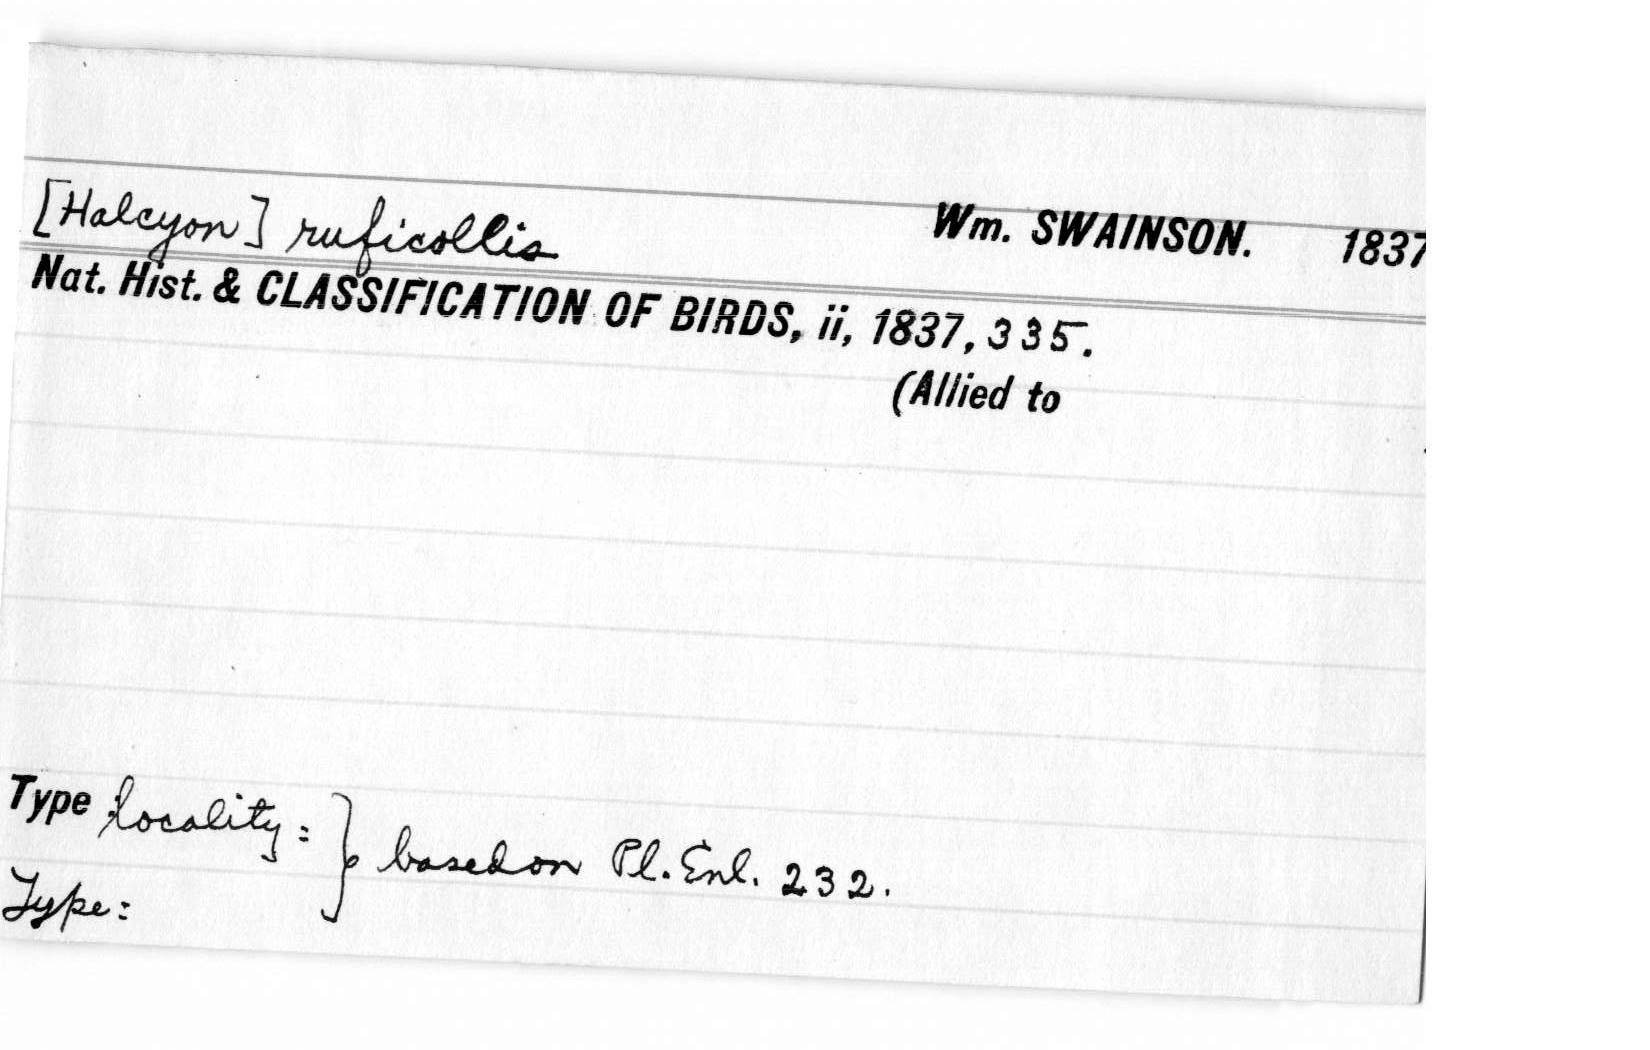 [Halcyon] ruficollis Wm. SWAINSON. 1837
Nat. Hist. & CLASSIFICATION OF BIRDS, ii, 1837, 335.
(Allied to
Type locality: } based on Pl. Enl. 232.
Type: